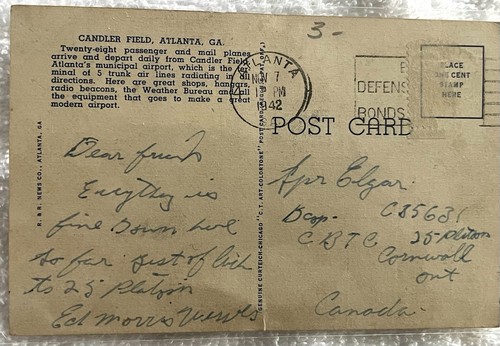 3-
CANDLER FIELD, ATLANTA, GA.
Twenty-eight passenger and mail planes
arrive and depart daily from Candler Field,
Atlanta's municipal airport, which is the ter-
minal of 5 trunk air lines radiating in all
directions. Here are great shops, hangars,
radio beacons, the Weather Bureau and all
the equipment that goes to make a great
modern airport.
R. & R. NEWS CO., ATLANTA, GA
GENUINE CURTEICH-CHICAGO "C.T. ART-COLORTONE" POST CARD
ATLANTA
7
PM
1942
DEFENSE
BONDS
PLACE
ONE CENT
STAMP
HERE
POST CARD
Dear friends
Everything is
fine Down here
so far Best of luck
to 25 Platoon
Ed Morris
Spr Elgar.
C85631
C.B.T.C. 25 Platoon
Cornwall
Ont
Canada.